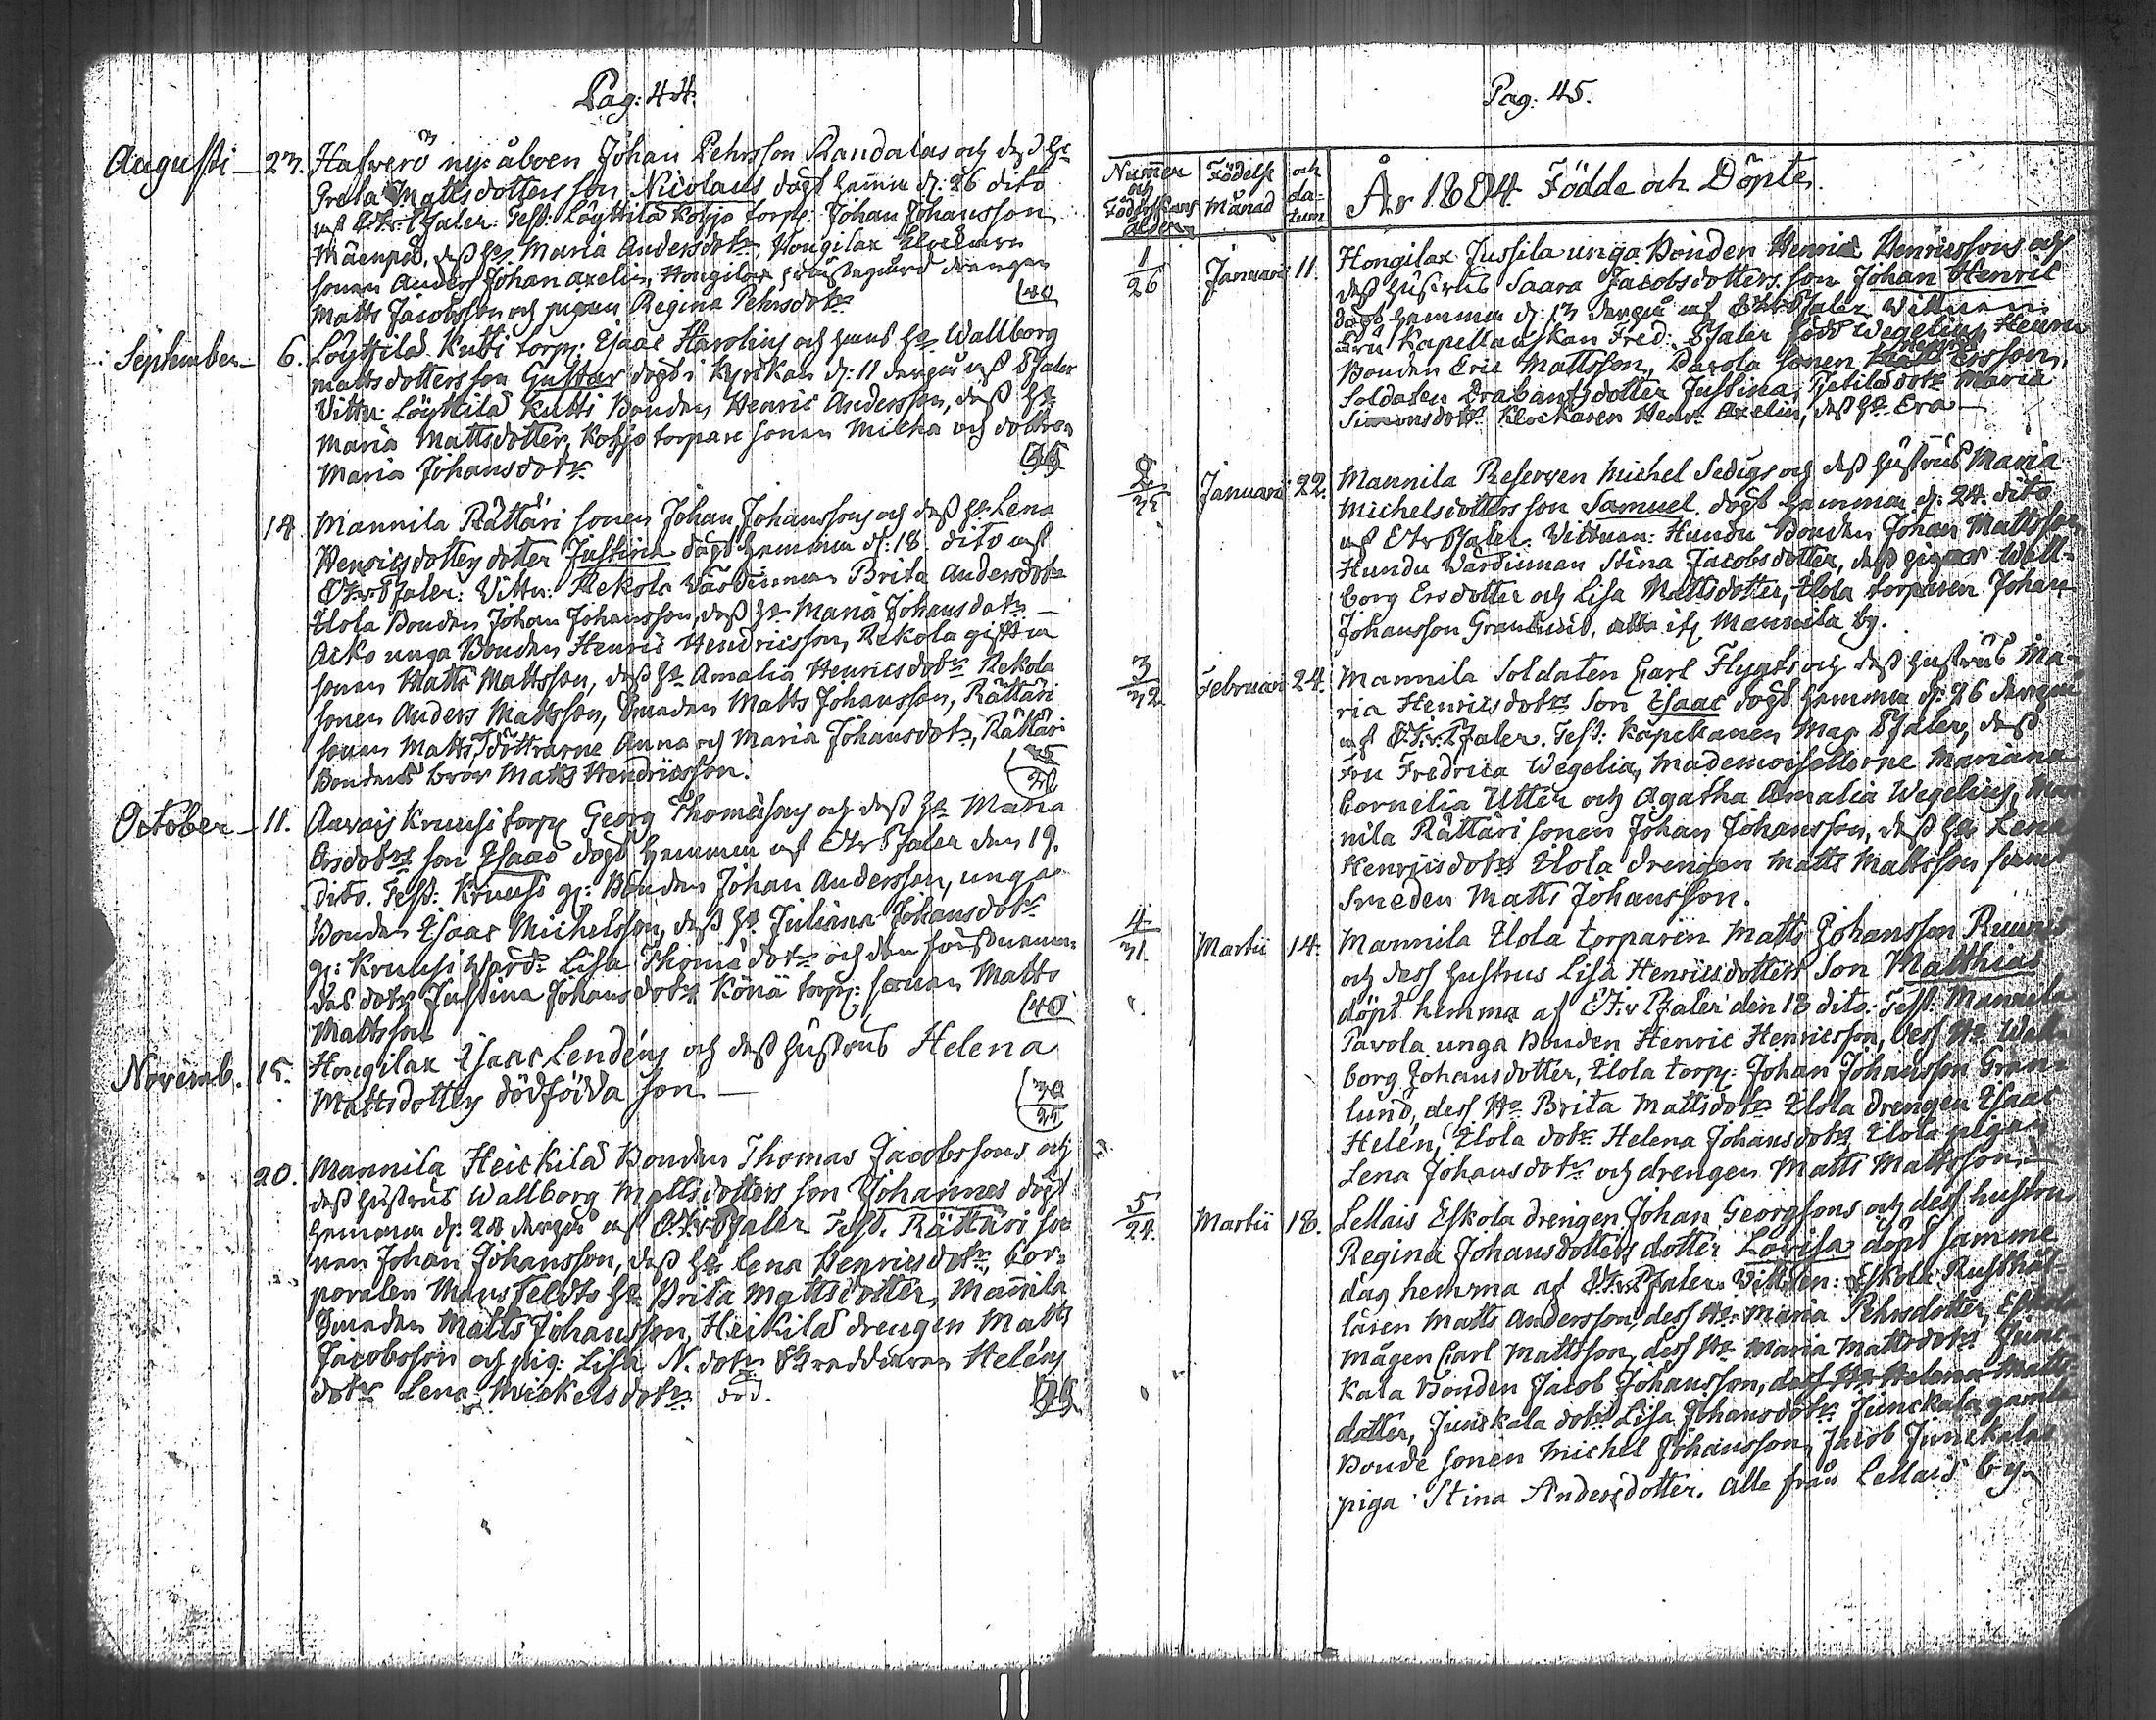 Pag: 44.
Augusti 23. Hafverö ny åboen Johan Pehrsson Randalas och dess H:
Greta Mattsdotters son Nicolaus döpt hemma d: 26 dito
af Pfaler: Test: Löyttilä torp: Johan Johansson
Mäenpää, dess H: Maria Andersdotr, Hongilax
sonen Anders Johan Axelin, Hongilax drengen
Matts Jacobsson och pigan Regina Pehrsdotr (40
September 6. Löyttilä Kutti torp: Esaac Harolius och hans H: Wallborg
Mattsdotters son Gustav döpt i Kyrkan d: 11 af Pfaler
Vittn: Löyttilä Kutti Bonden Henric Andersson, dess H:
Maria Mattsdotter, torpare sonen Micha och dottren
Maria Johansdotr
14. Mannila Rättäri sonen Johan Johanssons och dess H: Lena
Henricsdotters dotter Justina döpt hemma d: 18. dito af
Pfaler: Vittn: Rekola Värdinnan Brita Andersdotr
Ilola Bonden Johan Johansson, dess H: Maria Johansdotr
unga Bonden Henric Hendricsson, Rekola
sonen Matts Mattsson, dess H: Amalia Henricsdotr Rekola
sonen Anders Mattsson, Smeden Matts Johansson, Rättäri
sonen Matts, döttrarne Anna och Maria Johansdotr, Rättäri
Bondens bror Matts Hendricsson.
October 11. Kruusi torp: Georg Thomæsons och dess H: Maria
Ersdotrs son Esaac döpt hemma af Pfaler den 19.
dito. Test: Kruusi g: Bonden Johan Andersson, unga
Bonden Esaac Michelsson, dess H: Juliana Johansdotr
g: Kruusi Värd: Lisa Thomædotr och den
dotr Justina Johansdotr Könä torp: sonen Matts
Mattsson (40
Novemb. 15. Hongilax Esaac Lendéns och dess hustrus Helena
Mattsdotters dödfödda son
20. Mannila Heickilä Bonden Thomas Jacobssons och
dess hustrus Wallborg Mattsdotters son Johannes döpt
hemma d: 28 af Pfaler Test. Rättäri so-
nen Johan Johansson, dess H: Lena Henricsdotr, Cor-
poralen Mansfeldts H: Brita Mattsdotter, Mannila
Smeden Matts Johansson, Heikilä drengen Matts
Jacobsson och pig: Lisa N. dotr Skräddaren Heléns
dotr Lena Mickelsdotr död.
Pag: 45.
Nummer och Föderskans ålder Födelse Månad och datum År 1804 Födde och Döpte.
1/26 Januari 11. Hongilax Jussila unga Bonden Henric Henricssons och
dess hustrus Saara Jacobsdotters son Johan Henric
döpt hemma d: 13 af Pfaler Vittnen
Fru Kapellanskan Fred: Pfaler född Wegelius,
Bonden Eric Mattsson, Pavola sonen Ersson,
Soldaten Drabants dotter Justina, dotr Maria
Simonsdotr Klockaren Henr: Axelin, dess H: Eva
2/35 Januarii 22. Mannila Reserven Michel Sedigs och dess hustrus Maria
Michelsdotters son Samuel. döpt hemma d: 24. dito
af Pfaler. Vittnen: Hundu Bonden Johan Mattsson
Hundu Värdinnan Stina Jacobsdotter, dess Wall-
borg Ersdotter och Lisa Mattsdotter, Ilola torparen Johan
Johansson Granlund, alla Mannila by.
3/32 Februari 24. Mannila Soldaten Carl Flygts och dess hustrus Ma-
ria Henricsdotrs Son Esaac döpt hemma d: 26
af Pfaler. Test: Kapellanen Mag Pfaler, dess
Fru Fredrica Wegelia, Mademoisellerne Mariana
Cornelia Utter och Agatha Amalia Wegelius, Man
nila Rättäri sonen Johan Johansson, dess H: Lena
Henricsdotr Ilola drengen Matts Mattsson samt
Smeden Matts Johansson.
4/31. Martii 14. Mannila Ilola torparen Matts Johansson
och dess hustrus Lisa Henricsdotters Son Matthias
döpt hemma af Pfaler den 18 dito: Test: Mannila
Pavola unga Bonden Henric Henricsson, dess H: Wall
borg Johansdotter, Ilola torp: Johan Johansson Gran-
lund, dess H: Brita Mattsdotr Ilola drengen Esaac
Helén, Ilola dotr Helena Johansdotr, Ilola pigan
Lena Johansdotr och drengen Matts Mattsson.
5/24. Martii 18. Lellais Eskola drengen Johan Georgsons och dess hustru
Regina Johansdotters dotter Lovisa döpt samme
dag hemma af Pfaler Vittnen: Eskola Rusthål-
laren Matts Andersson, dess H: Maria Pehrsdotter, Eskola
mågen Carl Mattsson, dess H: Maria Mattsdotr Junc-
kala Bonden Jacob Johansson, dess H: Helena Matts-
dotter, Junckala dotr Lisa Johansdotr Junckala gamla
Bonde sonen Michel Johansson, Jacob Junckalas
piga Stina Andersdotter. Alle från Lellais by.